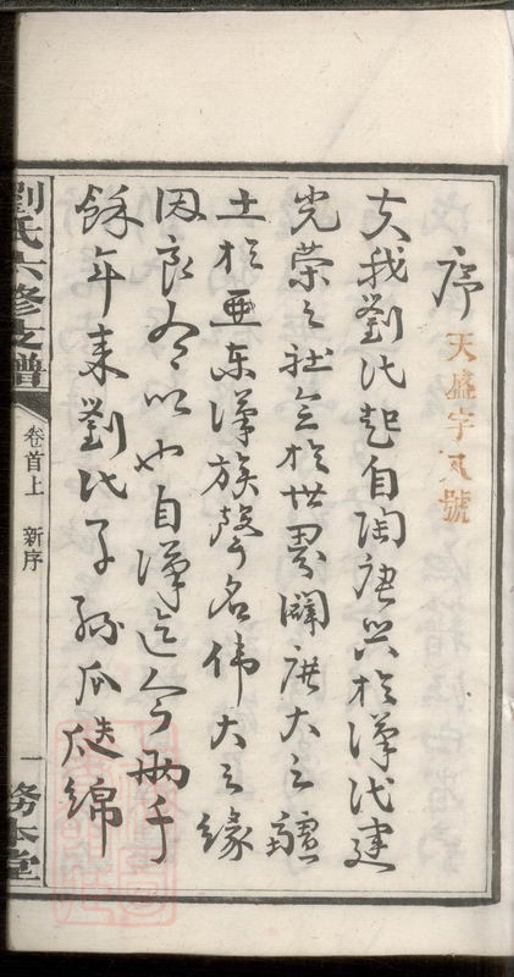 序
天盛字八號
夫我劉氏起自陶唐興於漢代建
光榮之社會於世界闢庶大之疆
土於亞東漢族聲名偉大之緣
因良有以也自漢迄今兩千
餘年來劉氏子孫瓜瓞綿
劉氏六修支譜
卷首上
新序
一
務本堂